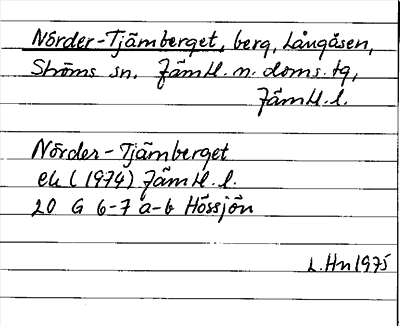 Nörder-Tjämberget, berg, Långåsen,
Ströms sn. Jämtl. n. doms. tg,
Jämtl. l.
Nörder-Tjämberget
ek (1974) Jämtl. l.
20 G 6-7 a-b Hössjön
L. Hn 1975